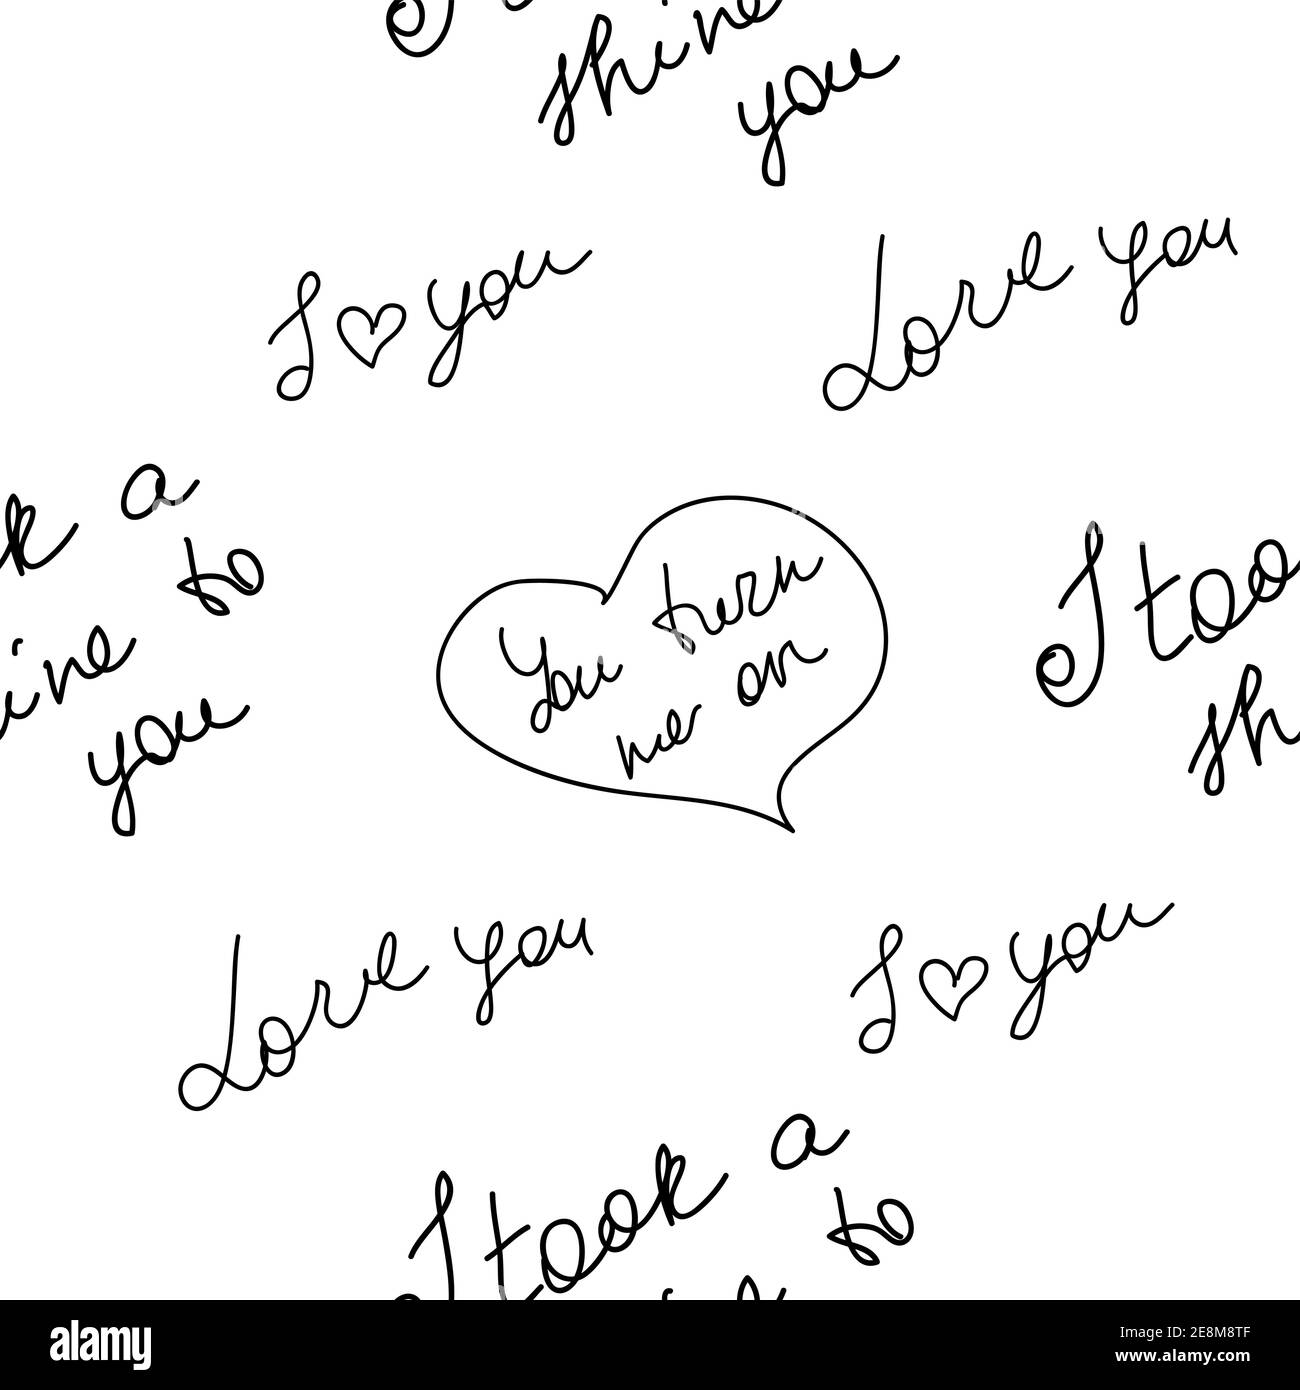 shine
you
I ♡ you
Love you
k a
to
ine
you
You turn
me on
I too
sh
Love you
I ♡ you
I took a
to
alamy
Image ID: 2E8M8TF
www.alamy.com